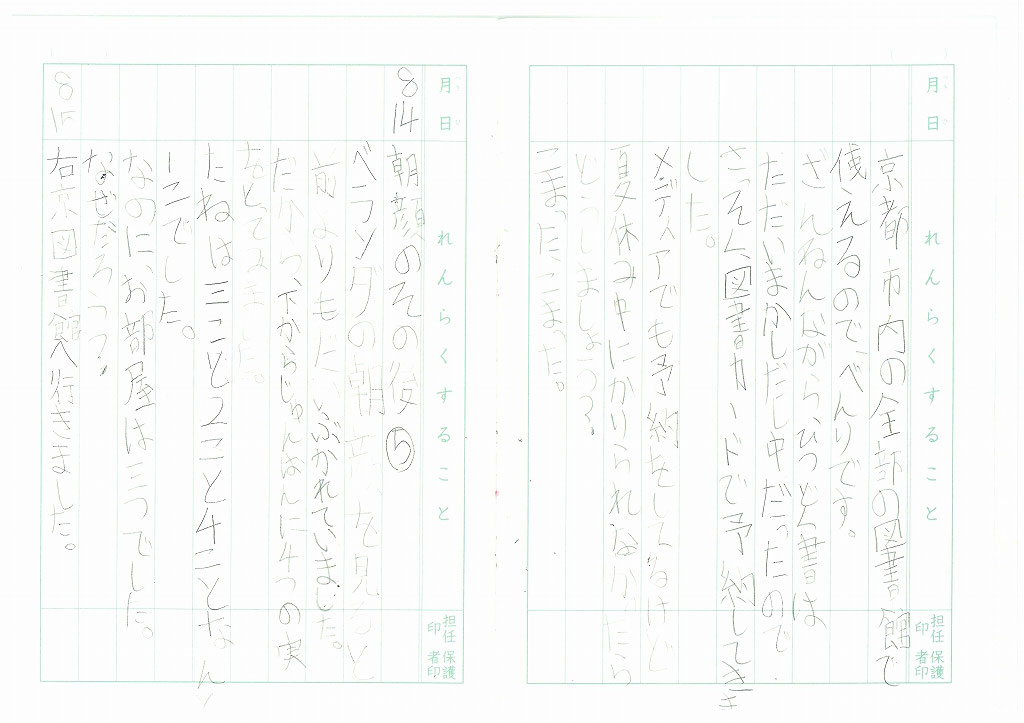 月日 れんらくすること 担任印 保護者印
京都市内の全部の図書館で
使えるのでべんりです。
ざんねんながら、ひつどく書は
ただいまかしだし中だったので
さっそく図書カードで予約してきま
した。
メディアでも予約をしてるけど
夏休み中にかりられなかったら
どうしましょう?
こまったこまった。
月日 れんらくすること 担任印 保護者印
8 14 朝顔のその後⑤
ベランダの朝顔を見ると
前よりもだいぶかれていました。
だから、下からじゅんばんに4つの実
をとってみました。
たねは三こと2こと4ことなんと
1こでした。
なのにお部屋は三つでした。
なぜだろうっ?
8 15 右京図書館へ行きました。